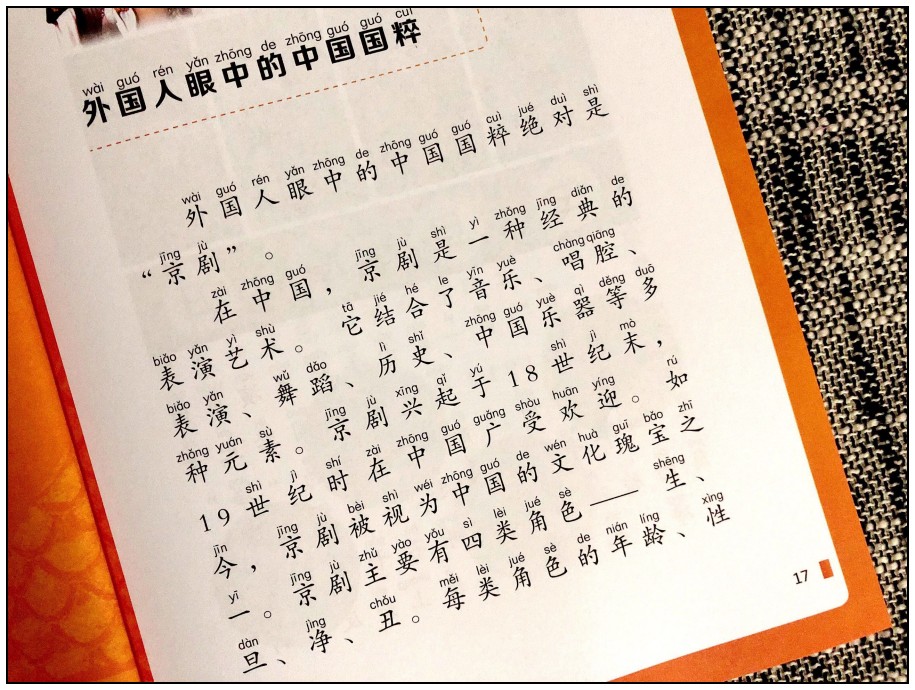 wài guó rén yǎn zhōng de zhōng guó guó cuì
外国人眼中的中国国粹
wài guó rén yǎn zhōng de zhōng guó guó cuì jué duì shì
外国人眼中的中国国粹绝对是
jīng jù
“京剧”。
zài zhōng guó jīng jù shì yì zhǒng jīng diǎn de
在中国，京剧是一种经典的
biǎo yǎn yì shù tā jié hé le yīn yuè chàng qiāng
表演艺术。它结合了音乐、唱腔、
biǎo yǎn wǔ dǎo lì shǐ zhōng guó yuè qì děng duō
表演、舞蹈、历史、中国乐器等多
zhǒng yuán sù jīng jù xīng qǐ yú shì jì mò
种元素。京剧兴起于18世纪末，
shì jì shí zài zhōng guó guǎng shòu huān yíng rú
19世纪时在中国广受欢迎。如
jīn jīng jù bèi shì wéi zhōng guó de wén huà guī bǎo zhī
今，京剧被视为中国的文化瑰宝之
yī jīng jù zhǔ yào yǒu sì lèi jué sè shēng
一。京剧主要有四类角色——生、
dàn jìng chǒu měi lèi jué sè de nián líng xìng
旦、净、丑。每类角色的年龄、性
17